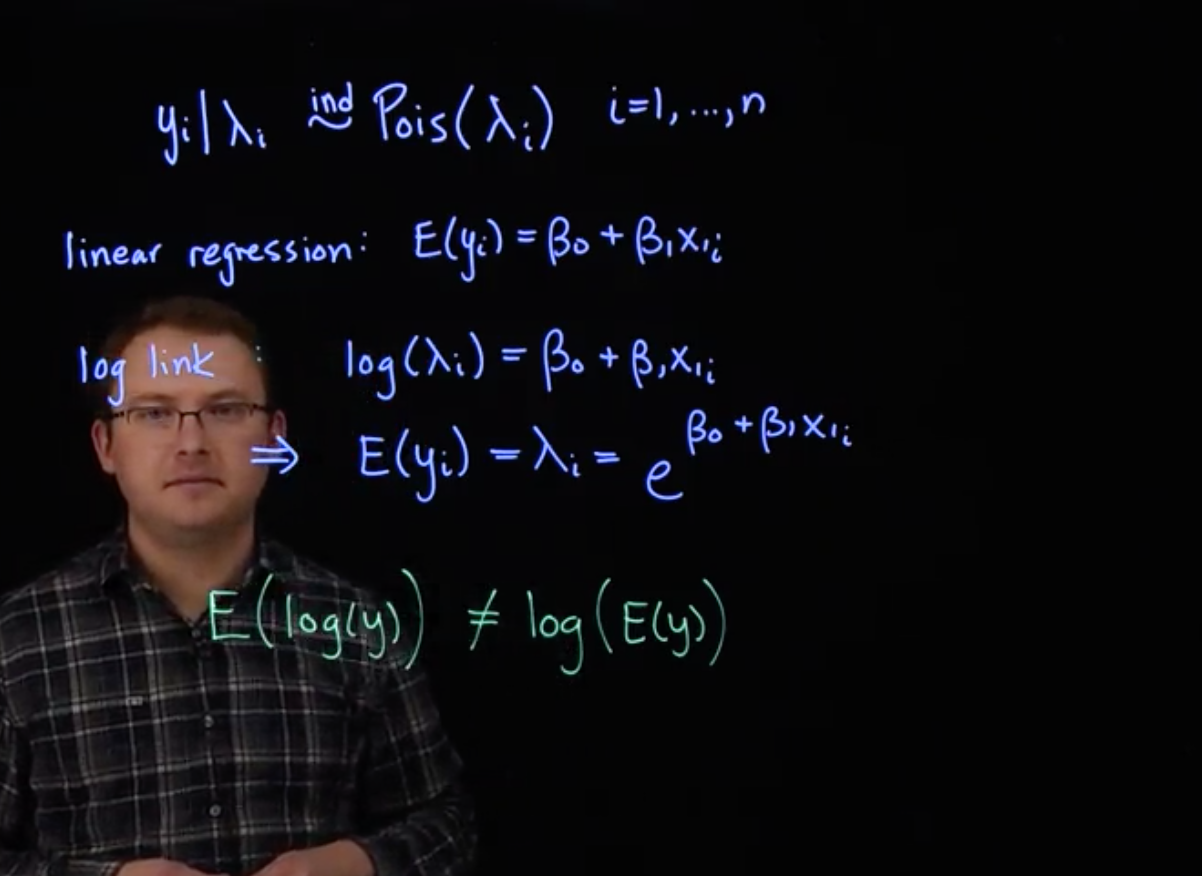 yᵢ|λᵢ ind~ Pois(λᵢ) i=1, ..., n
linear regression: E(yᵢ) = β₀ + β₁x₁ᵢ
log link : log(λᵢ) = β₀ + β₁x₁ᵢ
⇒ E(yᵢ) = λᵢ = e^(β₀ + β₁x₁ᵢ)
E(log(y)) ≠ log(E(y))